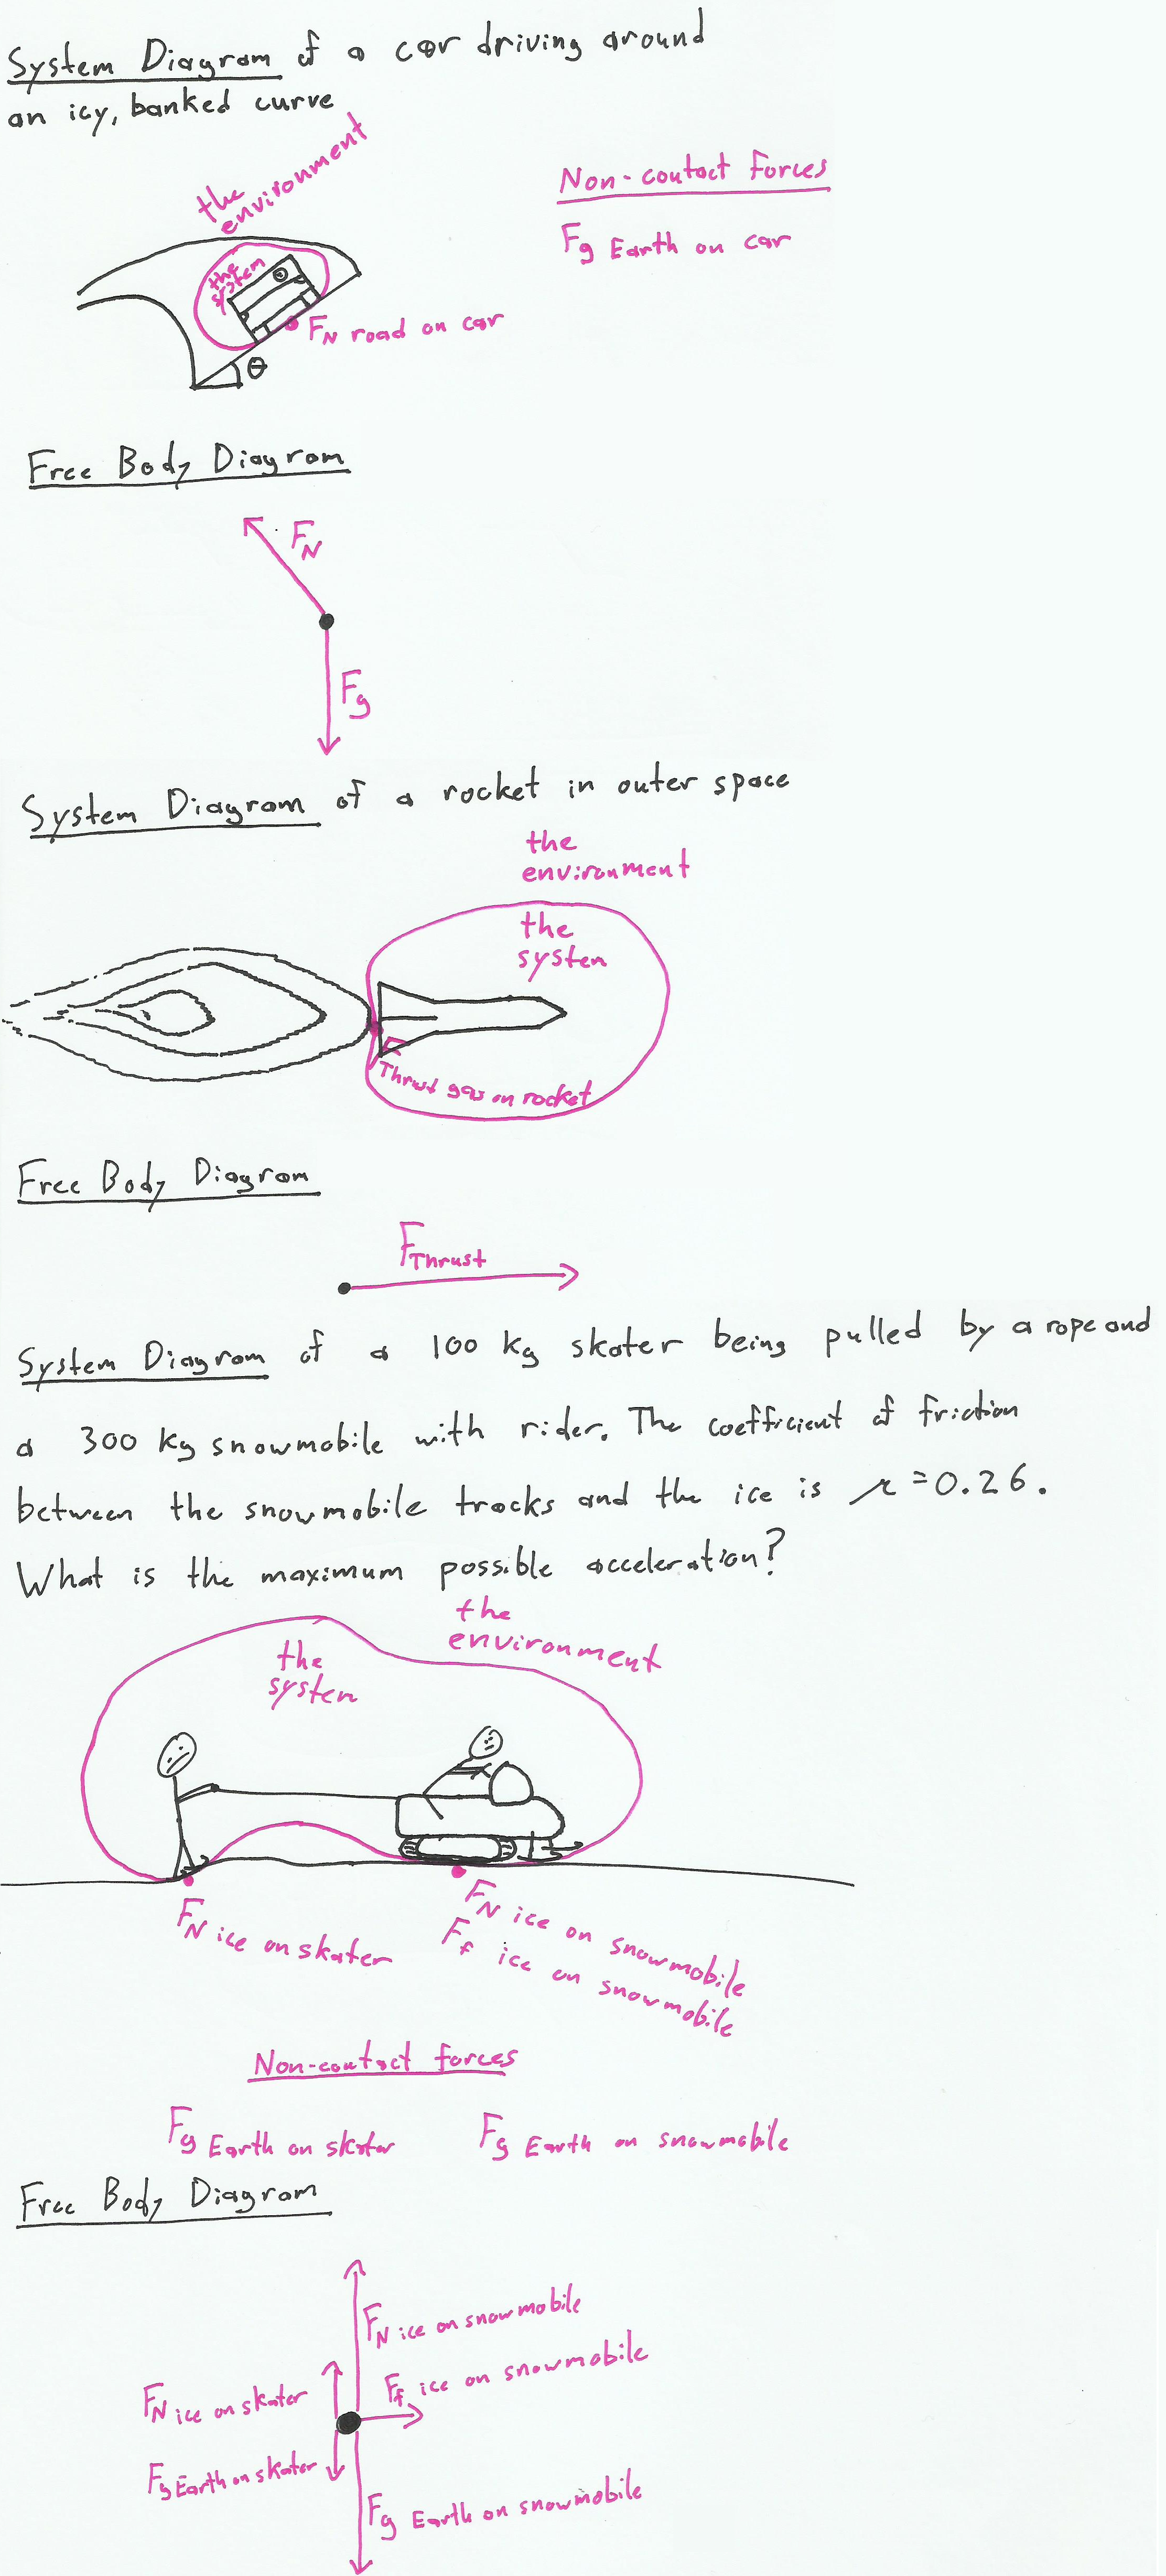 System Diagram of a car driving around
an icy, banked curve
the
environment
Non-contact Forces
Fg Earth on car
the
system
FN road on car
θ
Free Body Diagram
FN
Fg
System Diagram of a rocket in outer space
the
environment
the
system
Thrust gas on rocket
Free Body Diagram
FThrust
System Diagram of a 100 kg skater being pulled by a rope and
a 300 kg snowmobile with rider. The coefficient of friction
between the snowmobile tracks and the ice is μ=0.26.
What is the maximum possible acceleration?
the
environment
the
system
FN ice on skater
FN ice on snowmobile
Ff ice on snowmobile
Non-contact forces
Fg Earth on skater
Fg Earth on snowmobile
Free Body Diagram
FN ice on snowmobile
Ff ice on snowmobile
FN ice on skater
Fg Earth on skater
Fg Earth on snowmobile